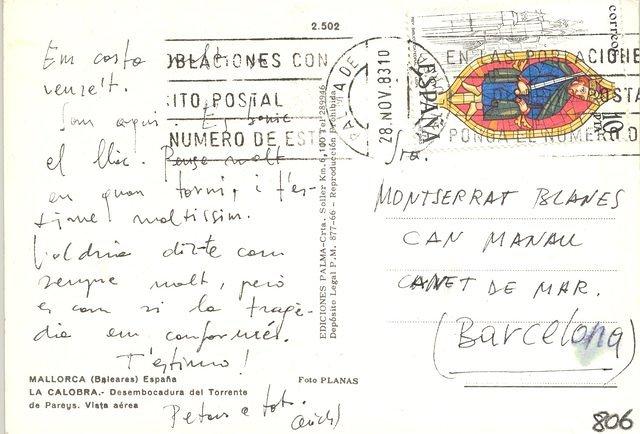 2.502
Em costa molt
vence't.
Som aquí. És bonic
el lloc. Penso molt
en quan torni, i t'es-
timo moltíssim.
Voldria dir-te com
sempre molt, però
és com si la tragè-
dia em conformés.
T'estimo!
Petons a tots.
OBLACIONES CON
ITO POSTAL
NUMERO DE EST
EN LAS POBLACIONE
POSTA
PONGA EL NUMERO D
28.NOV.83 10
PALMA DE
correos
ESPAÑA
16
PTA
EDICIONES PALMA-Crta. Soller Km. 6,100 Tel 289946
Depósito Legal P.M. 877-66 - Reproducción prohibida
Sra.
MONTSERRAT BLANES
CAN MANAU
CANET DE MAR.
(Barcelona)
MALLORCA (Baleares) España
Foto PLANAS
LA CALOBRA.- Desembocadura del Torrente
de Pareys. Vista aérea
806